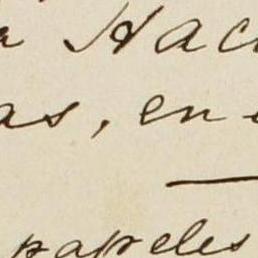 a Hac
as, en
papeles